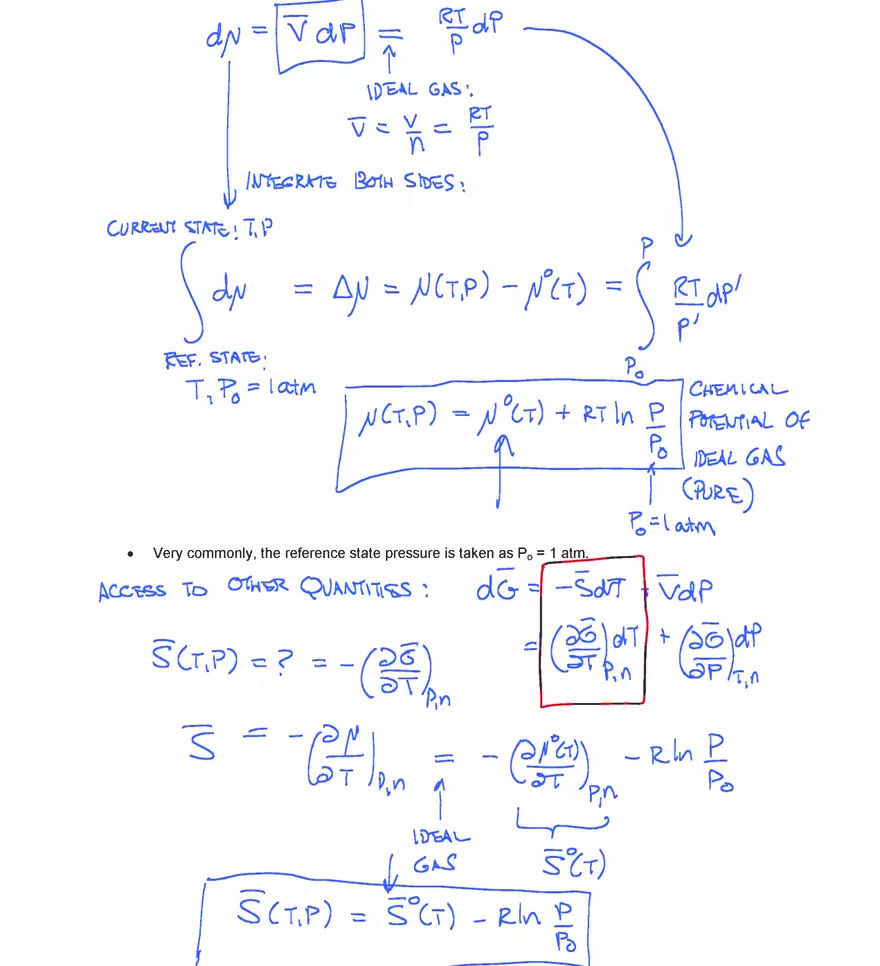 dμ = V̅ dP = RT/P dP
IDEAL GAS:
V̅ = V/n = RT/P
INTEGRATE BOTH SIDES:
CURRENT STATE: T, P
∫ dμ = Δμ = μ(T,P) − μ°(T) = ∫_{P₀}^{P} RT/P' dP'
REF. STATE:
T, P₀ = 1 atm
μ(T,P) = μ°(T) + RT ln P/P₀
CHEMICAL
POTENTIAL OF
IDEAL GAS
(PURE)
P₀ = 1 atm
• Very commonly, the reference state pressure is taken as Pₒ = 1 atm.
ACCESS TO OTHER QUANTITIES: dG̅ = −S̅dT + V̅dP
= (∂G̅/∂T)_{P,n} dT + (∂G̅/∂P)_{T,n} dP
S̅(T,P) = ? = −(∂G̅/∂T)_{P,n}
S̅ = −(∂μ/∂T)_{P,n} = −(∂μ°(T)/∂T)_{P,n} − R ln P/P₀
IDEAL
GAS
S̅°(T)
S̅(T,P) = S̅°(T) − R ln P/P₀